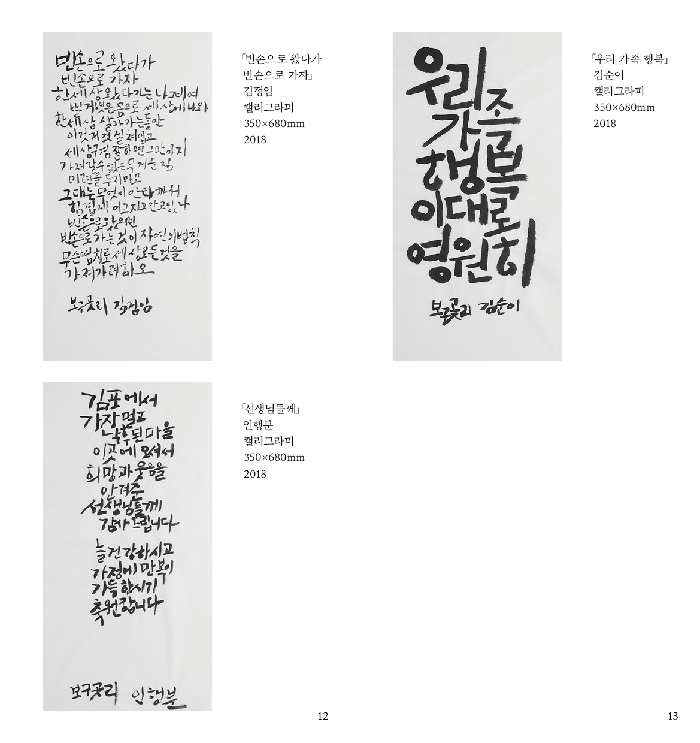 빈손으로 왔다가
빈손으로 가자
한세상 왔다가는 나그네여
세상에 나와
한세상 살아가는동안
이것저것
세상구경 잘하면 그만이지
가져갈수 없는 무거운 짐
미련을 두지마오
그대는 무엇이 아까워
힘겹게 이고지고 안고있나
빈손으로 왔으면
빈손으로 가는것이 자연의법칙
무슨 염치로 세상모든것을
가져가려하오
보구곶리 김정임
「빈손으로 왔다가
빈손으로 가자」
김정임
캘리그라피
350×680mm
2018
우리
가족
행복
이대로
영원히
보구곶리 김순이
「우리 가족 행복」
김순이
캘리그라피
350×680mm
2018
김포에서
가장멀고
낙후된마을
이곳에 오셔서
희망과웃음을
안겨준
선생님들께
감사드립니다
늘건강하시고
가정에만복이
가득하시기
축원합니다
보구곶리 인행분
「선생님들께」
인행분
캘리그라피
350×680mm
2018
12
13